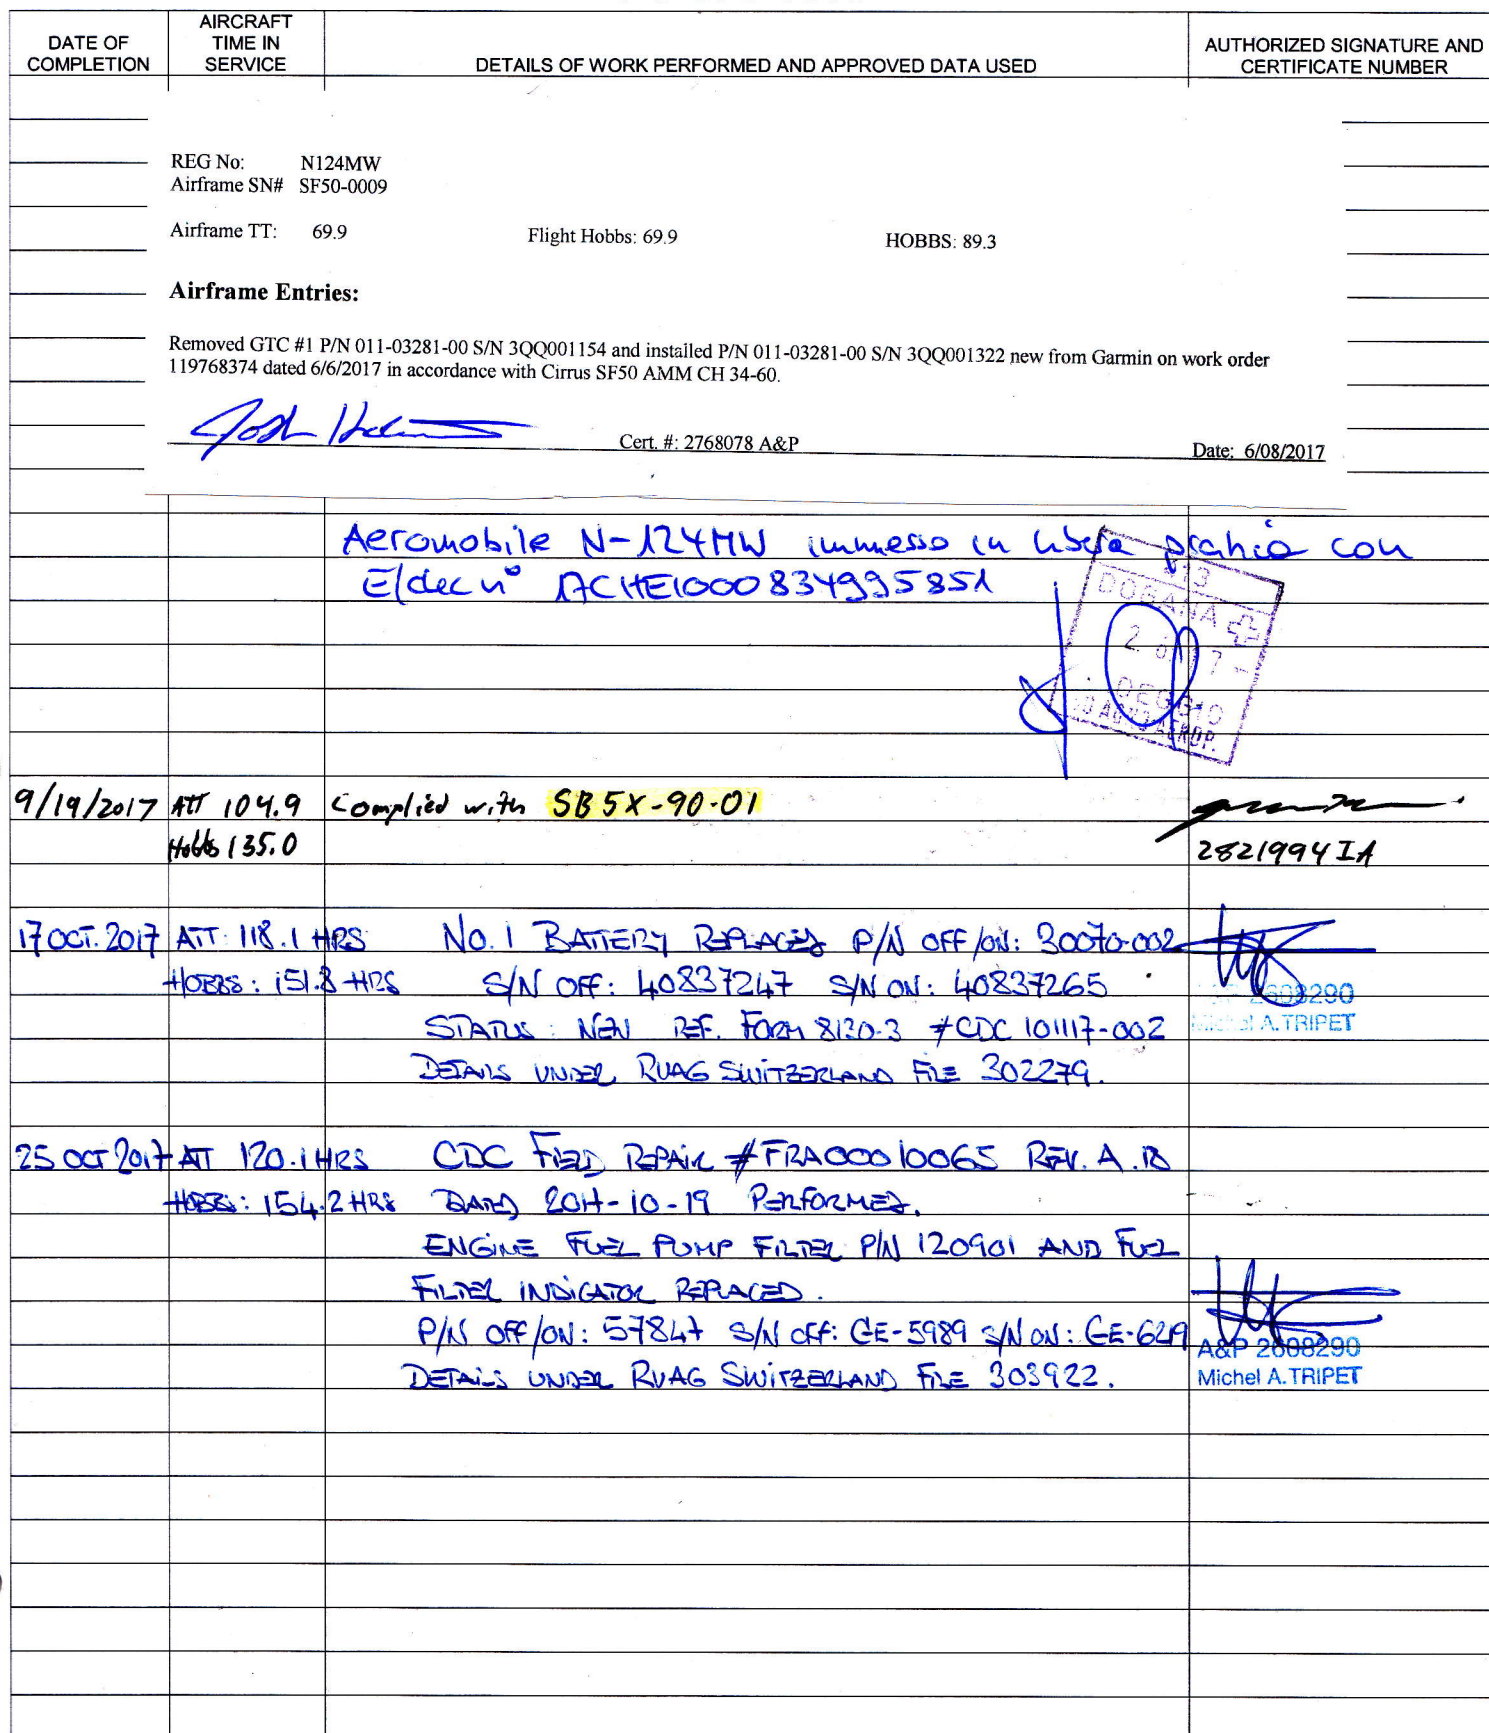 DATE OF COMPLETION
AIRCRAFT TIME IN SERVICE
DETAILS OF WORK PERFORMED AND APPROVED DATA USED
AUTHORIZED SIGNATURE AND CERTIFICATE NUMBER
REG No: N124MW
Airframe SN# SF50-0009
Airframe TT: 69.9 Flight Hobbs: 69.9 HOBBS: 89.3
Airframe Entries:
Removed GTC #1 P/N 011-03281-00 S/N 3QQ001154 and installed P/N 011-03281-00 S/N 3QQ001322 new from Garmin on work order
119768374 dated 6/6/2017 in accordance with Cirrus SF50 AMM CH 34-60.
Cert. #: 2768078 A&P Date: 6/08/2017
Aeromobile N-124MW immesso in libera pratica con
E/dec n° 17CHEI000834995851
DOGANA
AEROP.
9/19/2017 ATT 104.9 Complied with SB5X-90-01
Hobbs 135.0 2821994 IA
17 OCT. 2017 ATT: 118.1 HRS NO. 1 BATTERY REPLACED P/N OFF/ON: 30070-002
HOBBS: 151.8 HRS S/N OFF: 40837247 S/N ON: 40837265
2608290
STATUS: NEW REF. FORM 8130-3 #CDC 101117-002
A. TRIPET
DETAILS UNDER RUAG SWITZERLAND FILE 302279.
25 OCT 2017 ATT 120.1 HRS CDC FIELD REPAIR #FRA00010065 REV. A.
HOBBS: 154.2 HRS DATED 2017-10-19 PERFORMED.
ENGINE FUEL PUMP FILTER P/N 120901 AND FUEL
FILTER INDICATOR REPLACED.
P/N OFF/ON: 57847 S/N OFF: GE-5989 S/N ON: GE-6219
A&P 2608290
DETAILS UNDER RUAG SWITZERLAND FILE 303922.
Michel A. TRIPET